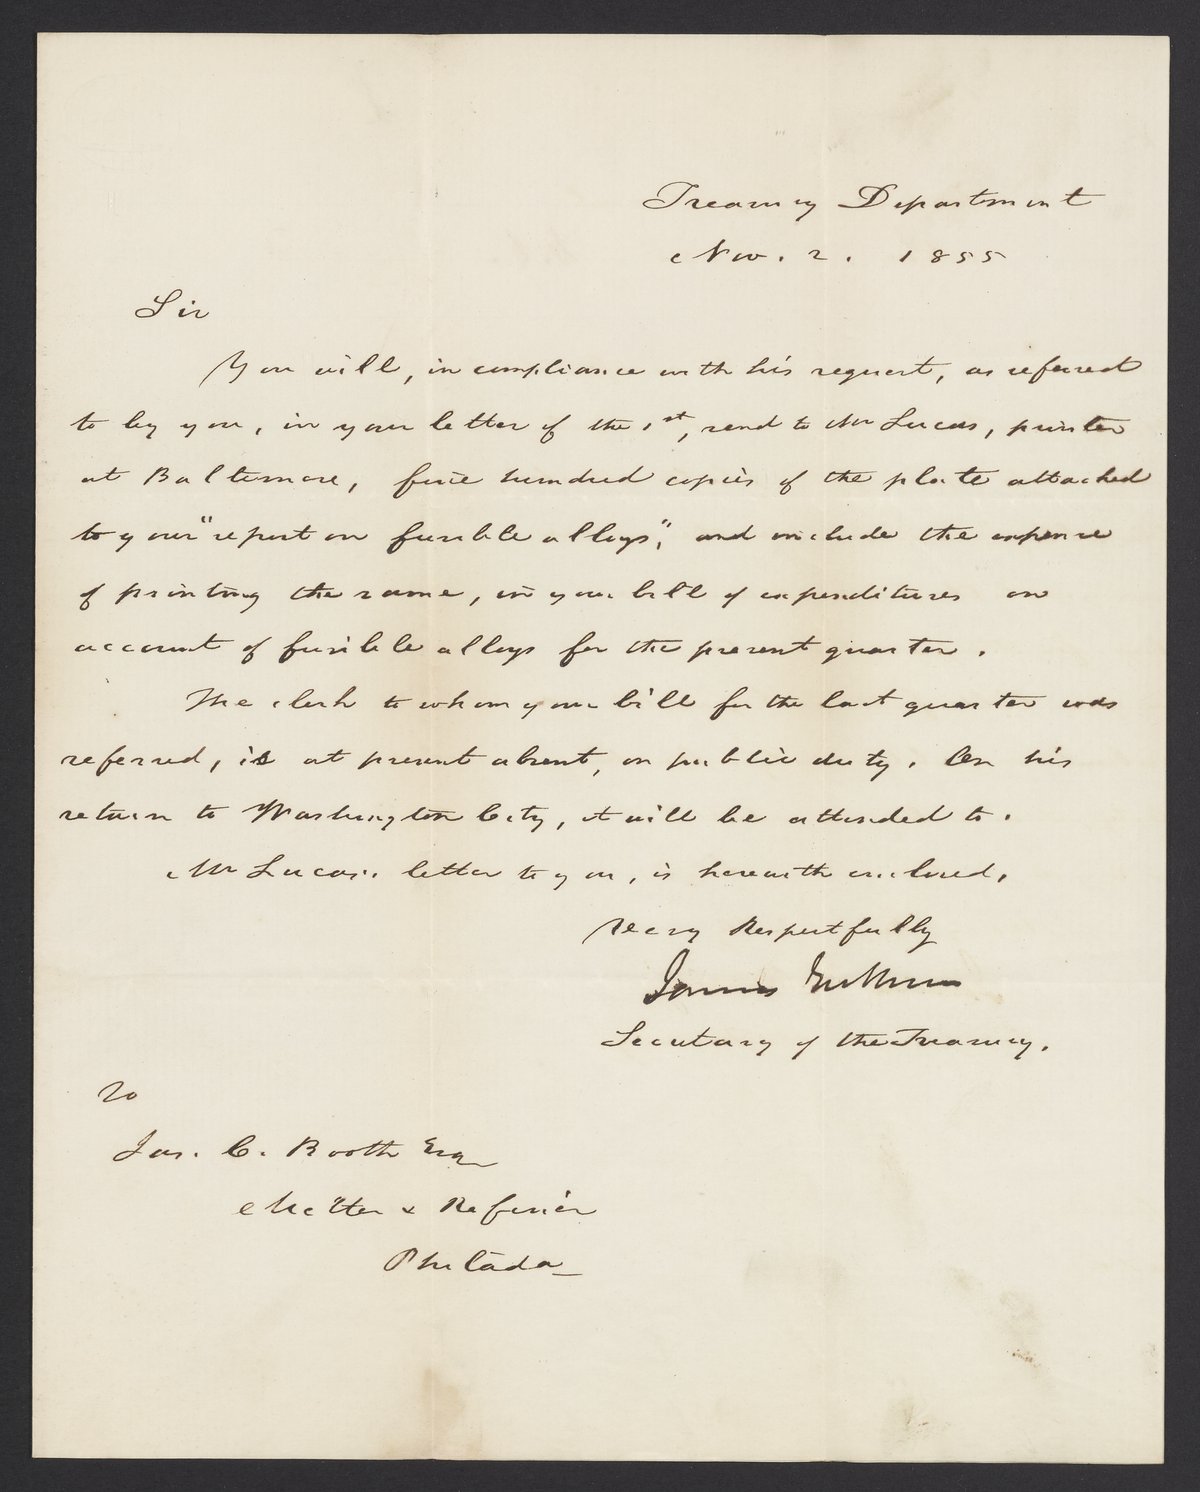 Treasury Department
Nov. 2. 1855
Sir
You will, in compliance with his request, as referred
to by you, in your letter of the 1st, send to Mr Lucas, printer
at Baltimore, five hundred copies of the plate attached
to your "report on fusible alloys", and include the expense
of printing the same, in your bill of expenditures on
account of fusible alloys for the present quarter.
The clerk to whom your bill for the last quarter was
referred, is at present absent, on public duty. On his
return to Washington City, it will be attended to.
Mr Lucas' letter to you, is herewith enclosed.
Very Respectfully
James Guthrie
Secretary of the Treasury.
To
Jas. C. Booth Esq
Melter & Refiner
Philada